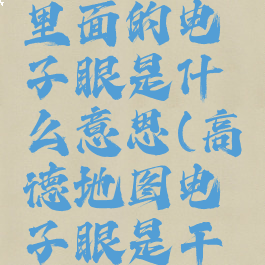 里面的电
子眼是什
么意思(高
德地图电
子眼是干